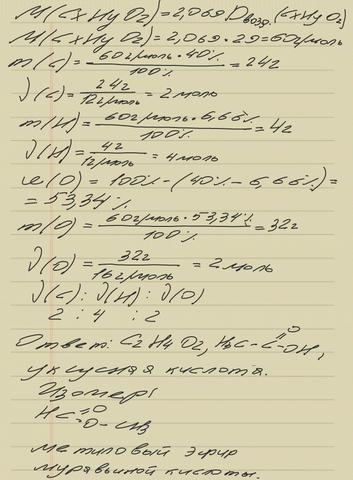 M(CxHyOz)=2,069 Dвозд.(CxHyOz)
M(CxHyOz)=2,069·29=60г/моль
m(C)=60г/моль·40%/100%=24г
ν(C)=24г/12г/моль=2моль
m(H)=60г/моль·6,66%/100%=4г
ν(H)=4г/12г/моль=4моль
ω(O)=100%-(40%-6,66%)=
=53,34%
m(O)=60г/моль·53,34%/100%=32г
ν(O)=32г/16г/моль=2моль
ν(C):ν(H):ν(O)
2 : 4 : 2
Ответ: C2H4O2, H3C-C=O-OH,
уксусная кислота.
Изомер:
HC=O-O-CH3
метиловый эфир
муравьиной кислоты.